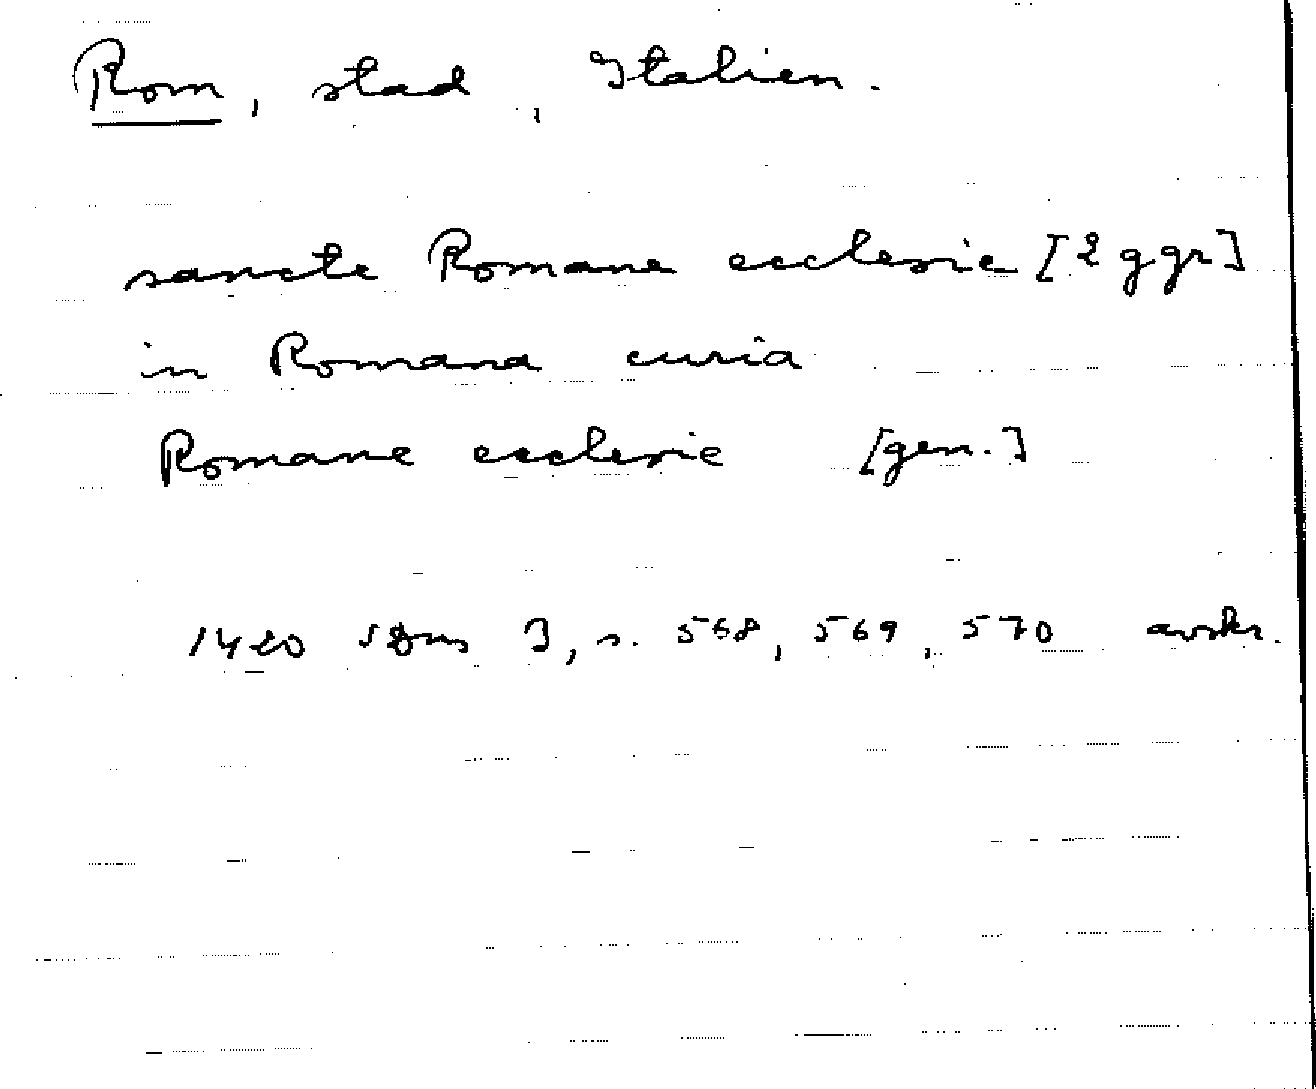 Rom, stad, Italien.
sancte Romane ecclesie [2 ggr]
in Romana curia
Romane ecclesie [gen.]
1420 SDns 3, s. 568, 569, 570 avskr.